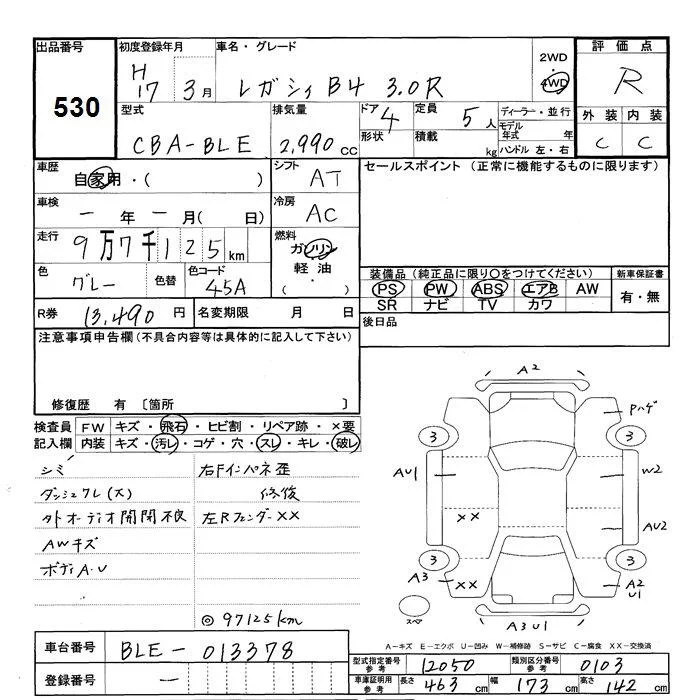 出品番号 530
初度登録年月 H17 3月
車名・グレード レガシィ B4 3.0R
2WD・4WD
評価点 R
型式 CBA-BLE
排気量 2,990cc
ドア 4
形状
定員 5人
積載 kg
ディーラー・並行
モデル年式 年
ハンドル 左・右
外装 C 内装 C
車歴 自家用・( )
シフト AT
セールスポイント (正常に機能するものに限ります)
車検 一年一月( 日)
冷房 AC
走行 9万7千125km
燃料 ガソリン 軽油 ( ・ )
色 グレー 色替 色コード 45A
装備品 (純正品に限り○をつけてください)
新車保証書
PS PW ABS エアB AW
有・無
SR ナビ TV カワ
R券 13,490円 名変期限 月 日
後日品
注意事項申告欄 (不具合内容等は具体的に記入して下さい)
修復歴 有 〔箇所 〕
検査員 FW キズ・飛石・ヒビ割・リペア跡・×要
記入欄 内装 キズ・汚レ・コゲ・穴・スレ・キレ・破レ
シミ
ダッシュワレ(大)
外オーディオ開閉不良
AWキズ
ボディA.U
右Fインパネ歪
修復
左Rフェンダー××
◎97125km
A2
Pハゲ
3 3
AU1 W2
×× AU2
3 3
A3 ×× A2 U1
スペ
A3U1
A-キズ E-エクボ U-凹み W-補修跡 S-サビ C-腐食 XX-交換済
車台番号 BLE-013378
登録番号 一
型式指定番号 参考 12050 類別区分番号 参考 0103
車庫証明用 参考 長さ 463cm 幅 173cm 高さ 142cm